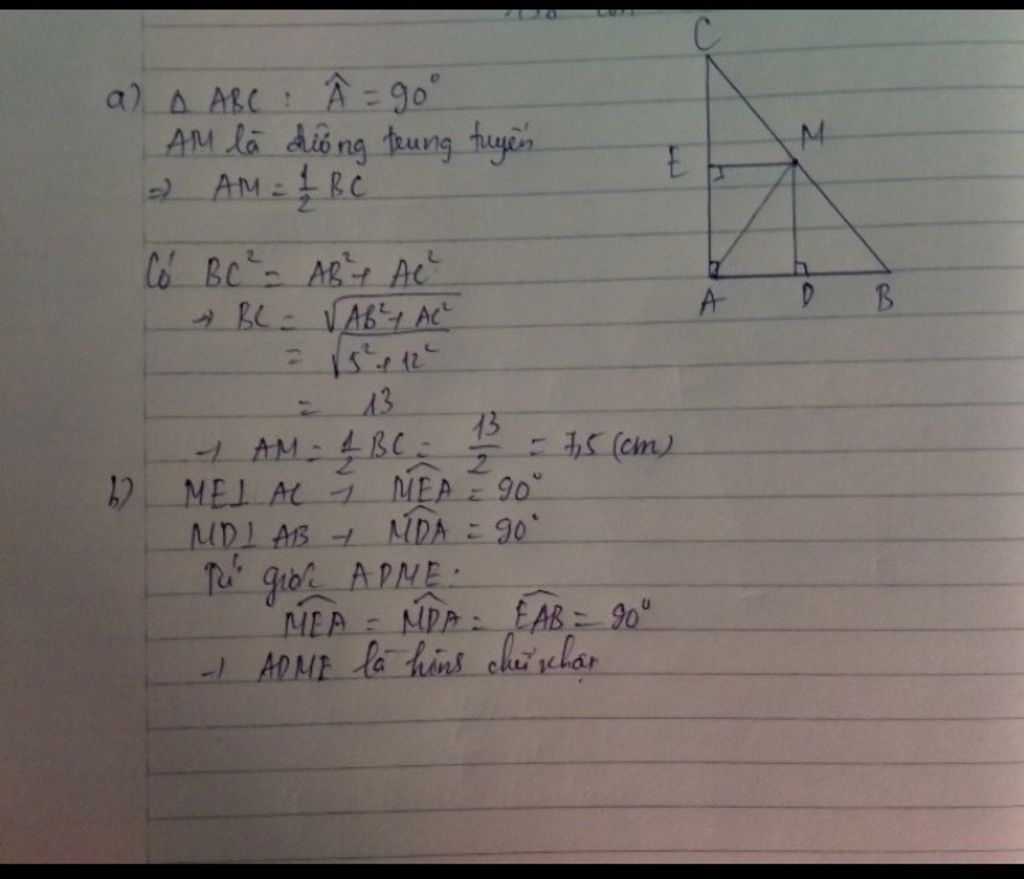 a) Δ ABC : Â = 90°
AM là đường trung tuyến
=> AM = 1/2 BC
Có BC² = AB² + AC²
→ BC = √(AB² + AC²)
= √(5² + 12²)
= 13
→ AM = 1/2 BC = 13/2 = 7,5 (cm)
b) ME ⊥ AC → MEA = 90°
MD ⊥ AB → MDA = 90°
Tứ giác ADME:
MEA = MDA = EAB = 90°
→ ADME là hình chữ nhật
C
M
E
A
D
B